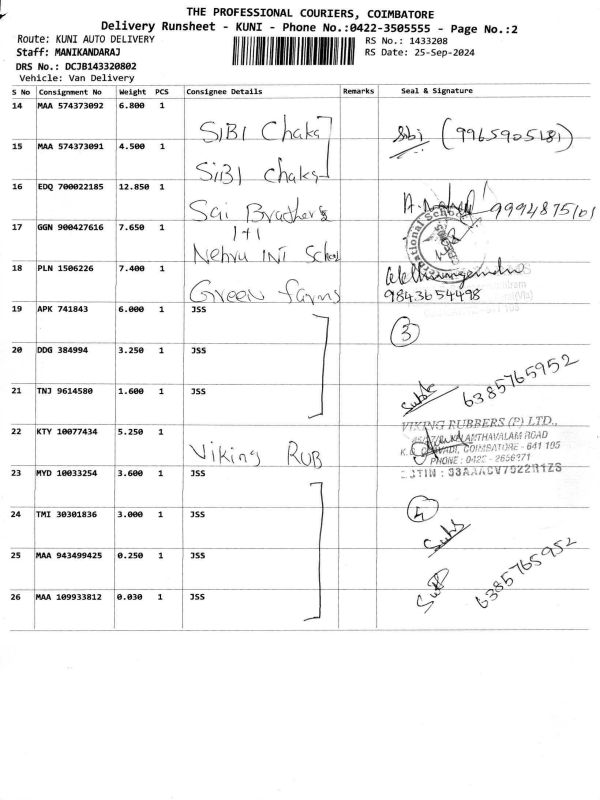 THE PROFESSIONAL COURIERS, COIMBATORE
Delivery Runsheet - KUNI - Phone No.:0422-3505555 - Page No.:2
Route: KUNI AUTO DELIVERY
RS No.: 1433208
Staff: MANIKANDARAJ
RS Date: 25-Sep-2024
DRS No.: DCJB143320802
Vehicle: Van Delivery
S No Consignment No Weight PCS Consignee Details Remarks Seal & Signature
14 MAA 574373092 6.800 1 SIBI Chaks
Sibi (9965905181)
15 MAA 574373091 4.500 1 SiBI chaks
16 EDQ 700022185 12.850 1 Sai Brothers
9994875101
1+1
17 GGN 900427616 7.650 1 Nehru INT School
18 PLN 1506226 7.400 1 Green farms
9843654498
19 APK 741843 6.000 1 JSS
3
20 DDG 384994 3.250 1 JSS
21 TNJ 9614580 1.600 1 JSS
6385765952
22 KTY 10077434 5.250 1 Viking RUB
VIKING RUBBERS (P) LTD.,
KALANTHAVALAM ROAD
COIMBATORE - 641 105
PHONE : 0422 - 2656371
GSTIN : 33AAACV7022R1ZS
23 MYD 10033254 3.600 1 JSS
24 TMI 30301836 3.000 1 JSS
4
25 MAA 943499425 0.250 1 JSS
6385765952
26 MAA 109933812 0.030 1 JSS